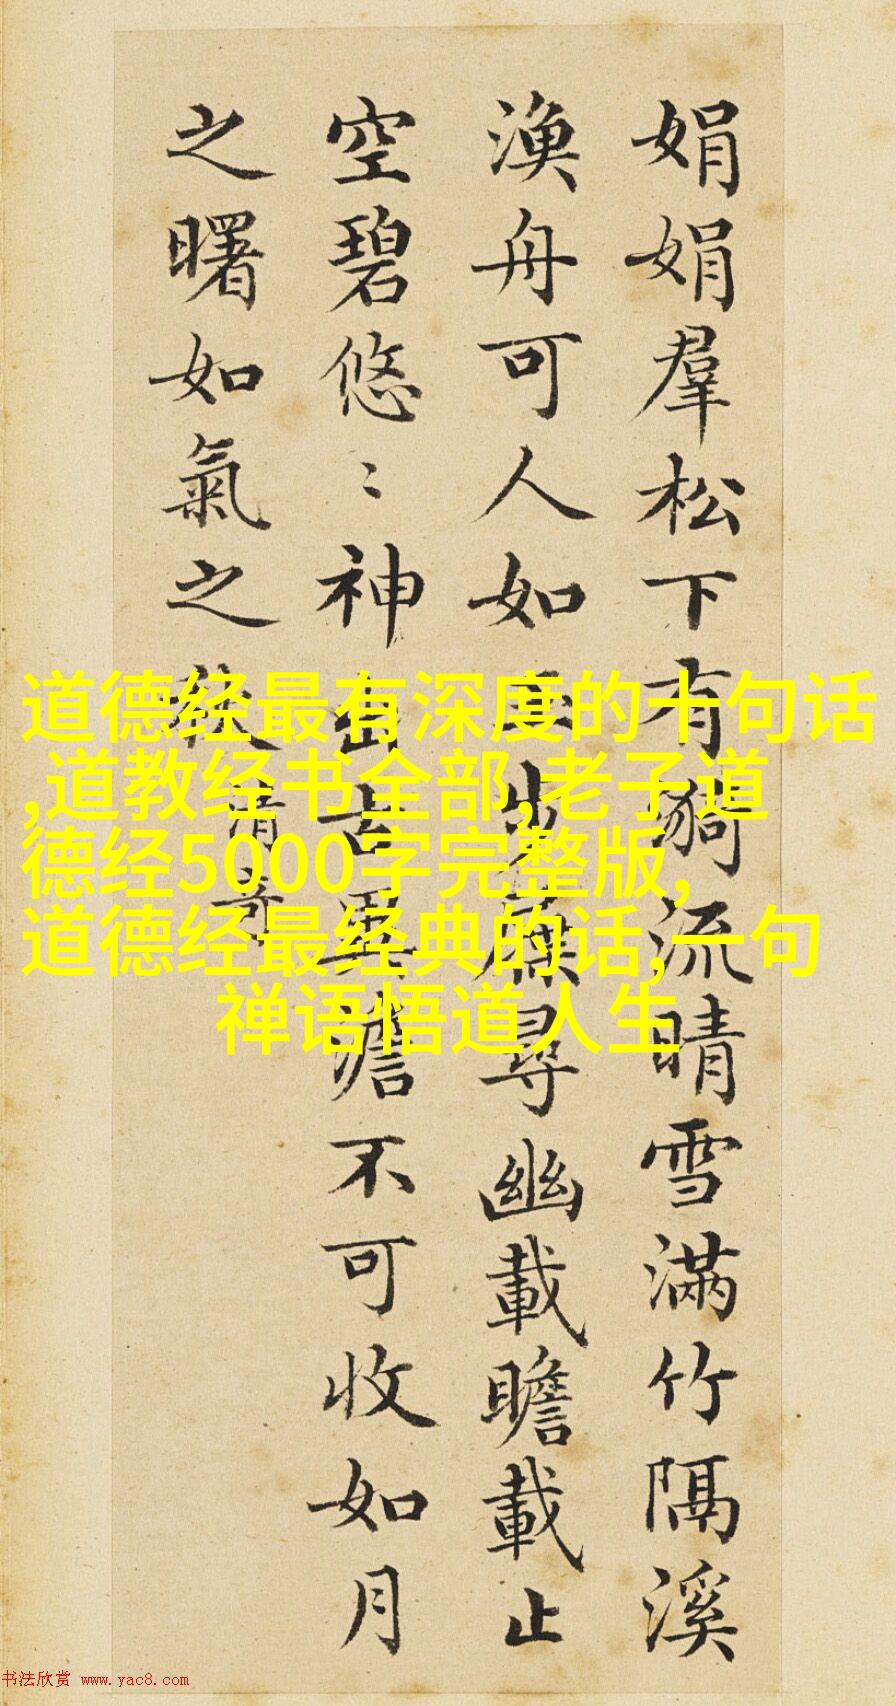 娟娟羣松下有漪流晴雪滿竹隔溪
漁舟可人如玉步屧尋幽載瞻載止
空碧悠〻神出古異澹不可收如月
之曙如氣之秋清奇
道德经最有深度的十句话
,道教经书全部,老子道
德经5000字完整版,
道德经最经典的话,一句
禅语悟道人生
书法欣赏 www.yac8.com